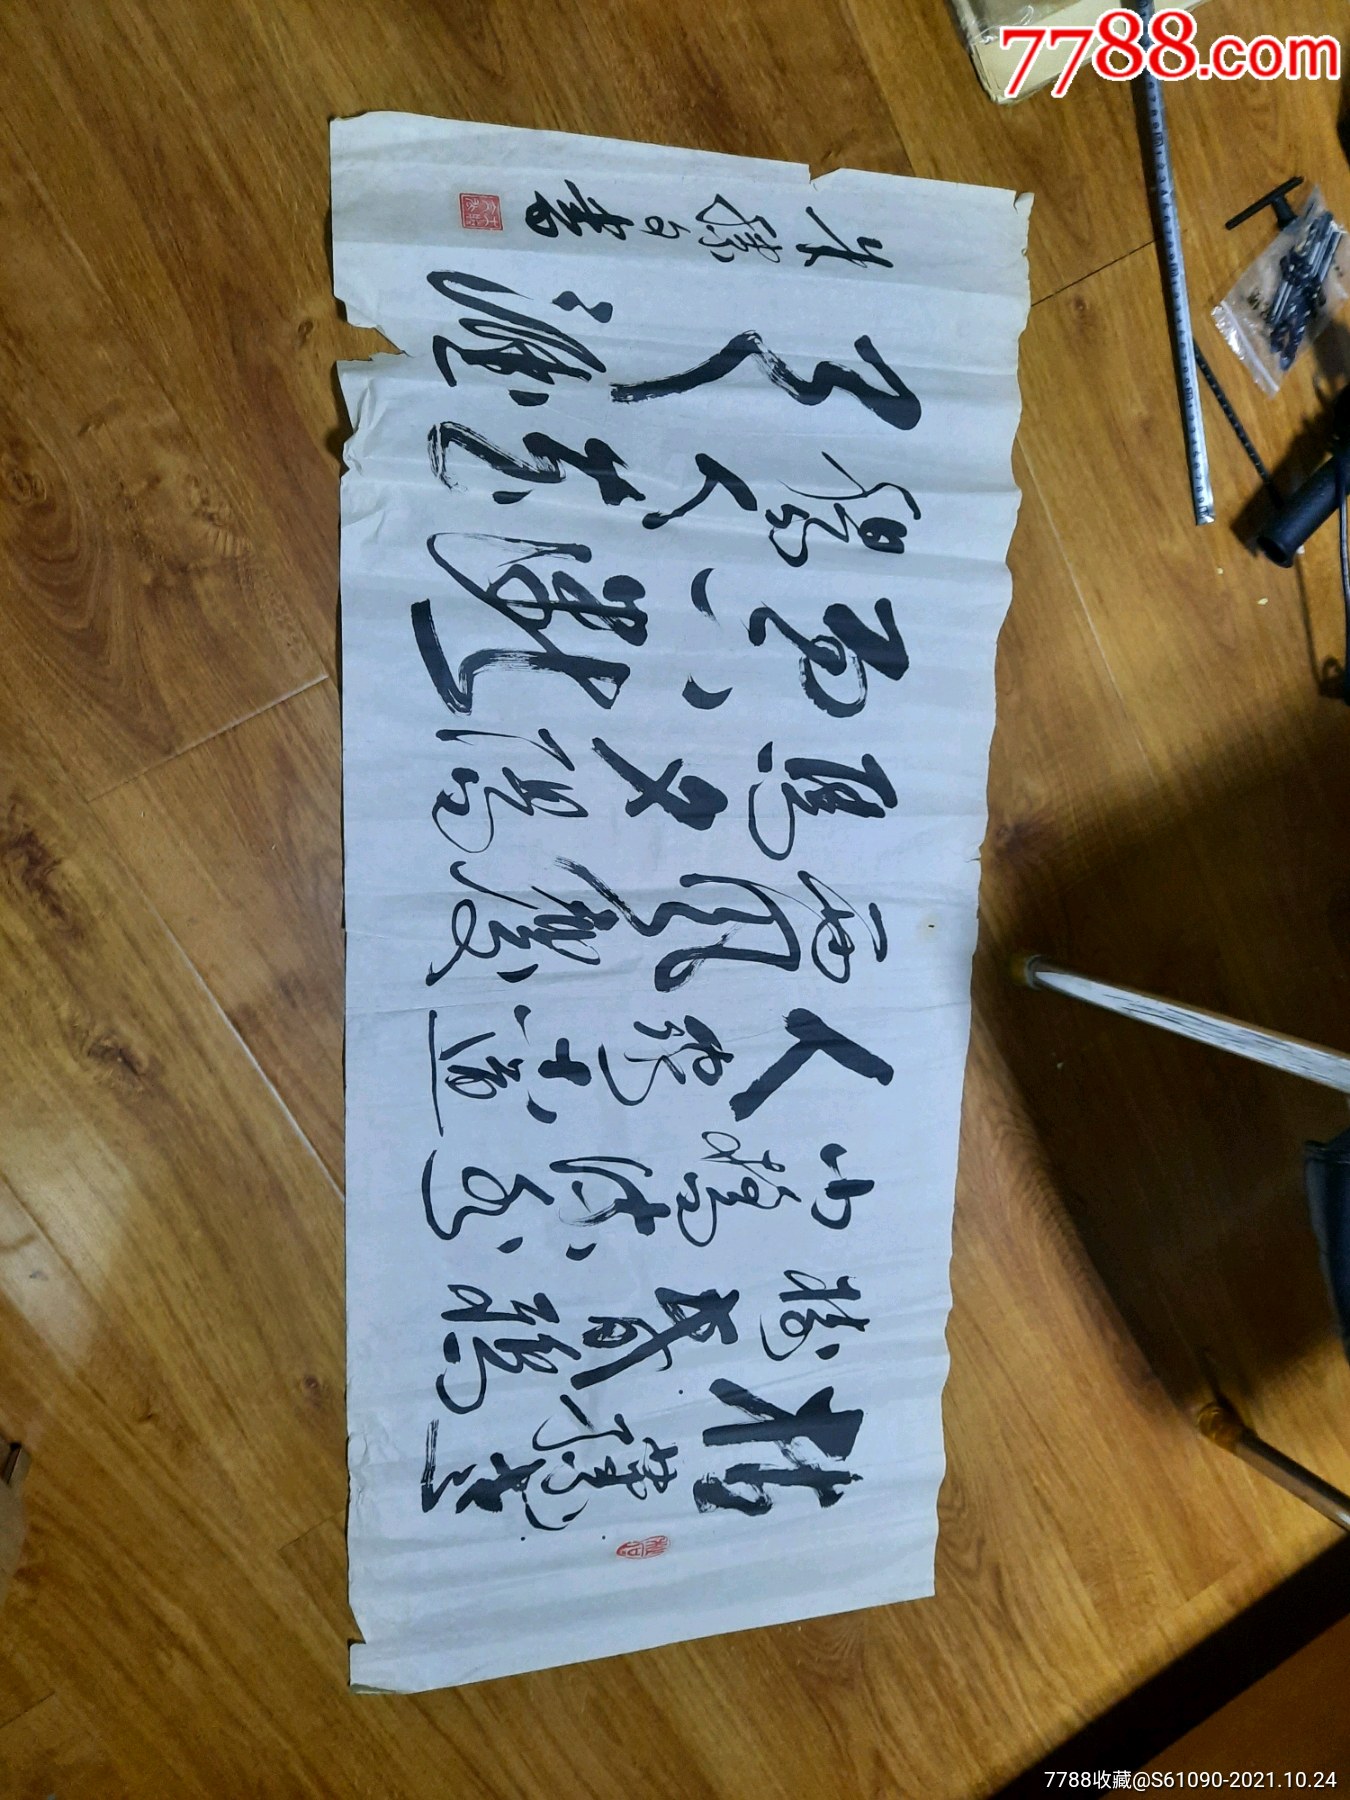 枯藤老
树昏鸦
小桥流水
人家古道
西风瘦
马夕阳
西下断
肠人在
天涯
书
7788.com
7788收藏@S61090-2021.10.24